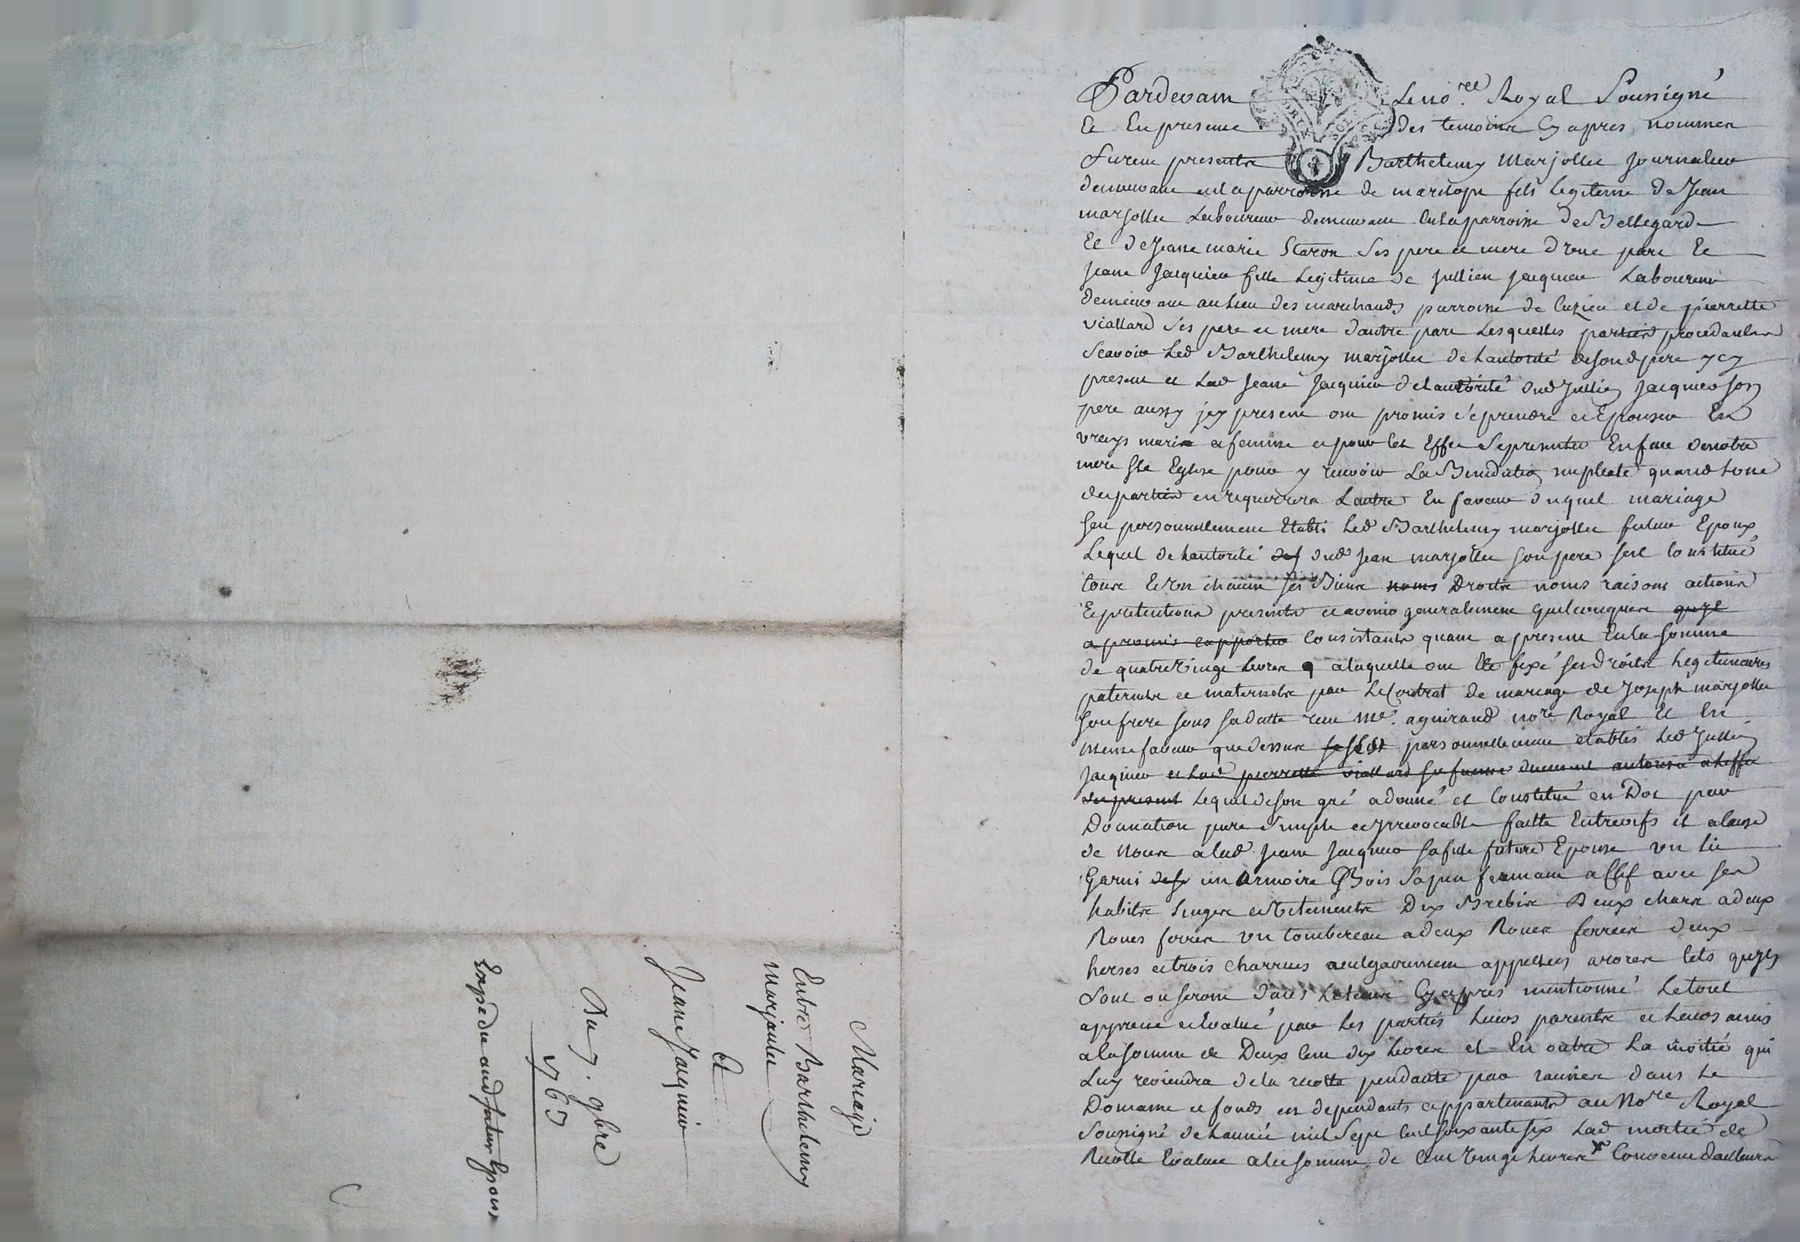 Pardevant Le no.re Royal Soussigné
Et En presence des temoins Cy apres nommes
Furent presents Barthelemy marjollet Journalier
demeurant en la parroisse de marclopt fils legitime de Jean
marjollet Laboureur demeurant en la parroisse de Bellegarde
Et de Jeanne marie Staron Ses pere et mere d'une part Et
Jeanne Jacquieu fille Legitime de Jullien Jacquieu Laboureur
demeurant au lieu des marchands parroisse de Cuzieu et de pierrette
viallard Ses pere et mere dautre part Lesquelles parties procedantes
Scavoir Led Barthelemy marjollet de Lautorité desond pere ycy
present et Lad Jeanne Jacquieu de Lautorité dud Jullien Jacquieu Son
pere aussy jcy present ont promis Se prendre et Epouser En
vrays maris et femme et pour Cet Effet Se presenter En face de notre
mere Ste Eglise pour y recevoir La Benediction nuptiale quand Lune
des parties en requerrera Lautre En faveur duquel mariage
Sen personnellement Etabli Led Barthelemy marjollet futur Epoux
Lequel de Lautorité des dud Jean marjollet Son pere Sest Constitué
tous Et Un chacun Ses Biens noms Droits noms raisons actions
Et pretentions presents et avenir generalement quelconques quyl
a promis apporter Consistants quant a present En la Somme
de quatre Vingt Livres a laquelle ont Ete fixé Ses droits Legitimaires
paternels et maternels par Le Contrat de mariage de Joseph marjollet
Son frere Sous Sa datte recu Me. aguiraud nore Royal Et En
meme faveur que dessus Sest personnellement etablis Led Jullien
Jacquieu et Lad pierrette viallard Sa femme duement autorisé a Leffet
des present Lequel de Son gré a donné et Constitué en Dot par
Donnation pure Simple et Irrevocable faitte Entrevifs et a cause
de Noces a lad Jeanne Jacquieu Sa fille future Epouse un lit
Garni des un armoire Bois Sapin fermant a Clef avec Ses
habits Linges et Vetements Dix Brebis Deux chars a deux
Roues ferrés un tombereau a deux Roues ferrées deux
herses et trois Charrues vulgairement appellees araires tels quyls
Sont ou Seront dans Cy apres mentionné Le tout
apprecié et Evalué par les parties Leurs parents et Leurs amis
a la Somme de Deux Cent dix Livres et En outre La moitié qui
Luy reviendra de la recolte pendante par racines dans Le
Domaine et fonds en dependants appartenants au Nore Royal
Soussigné de Lannée mil Sept Cent Soixante Six Lad moitié de
Recolte Evaluée a la Somme de Cent Vingt Livres x Convenu dailleurs
Mariage
Entre Barthelemy
Marjaulet
Et
Jeanne Jacquieu
Du 7. 9bre
1765
Expedie aud futur Epoux